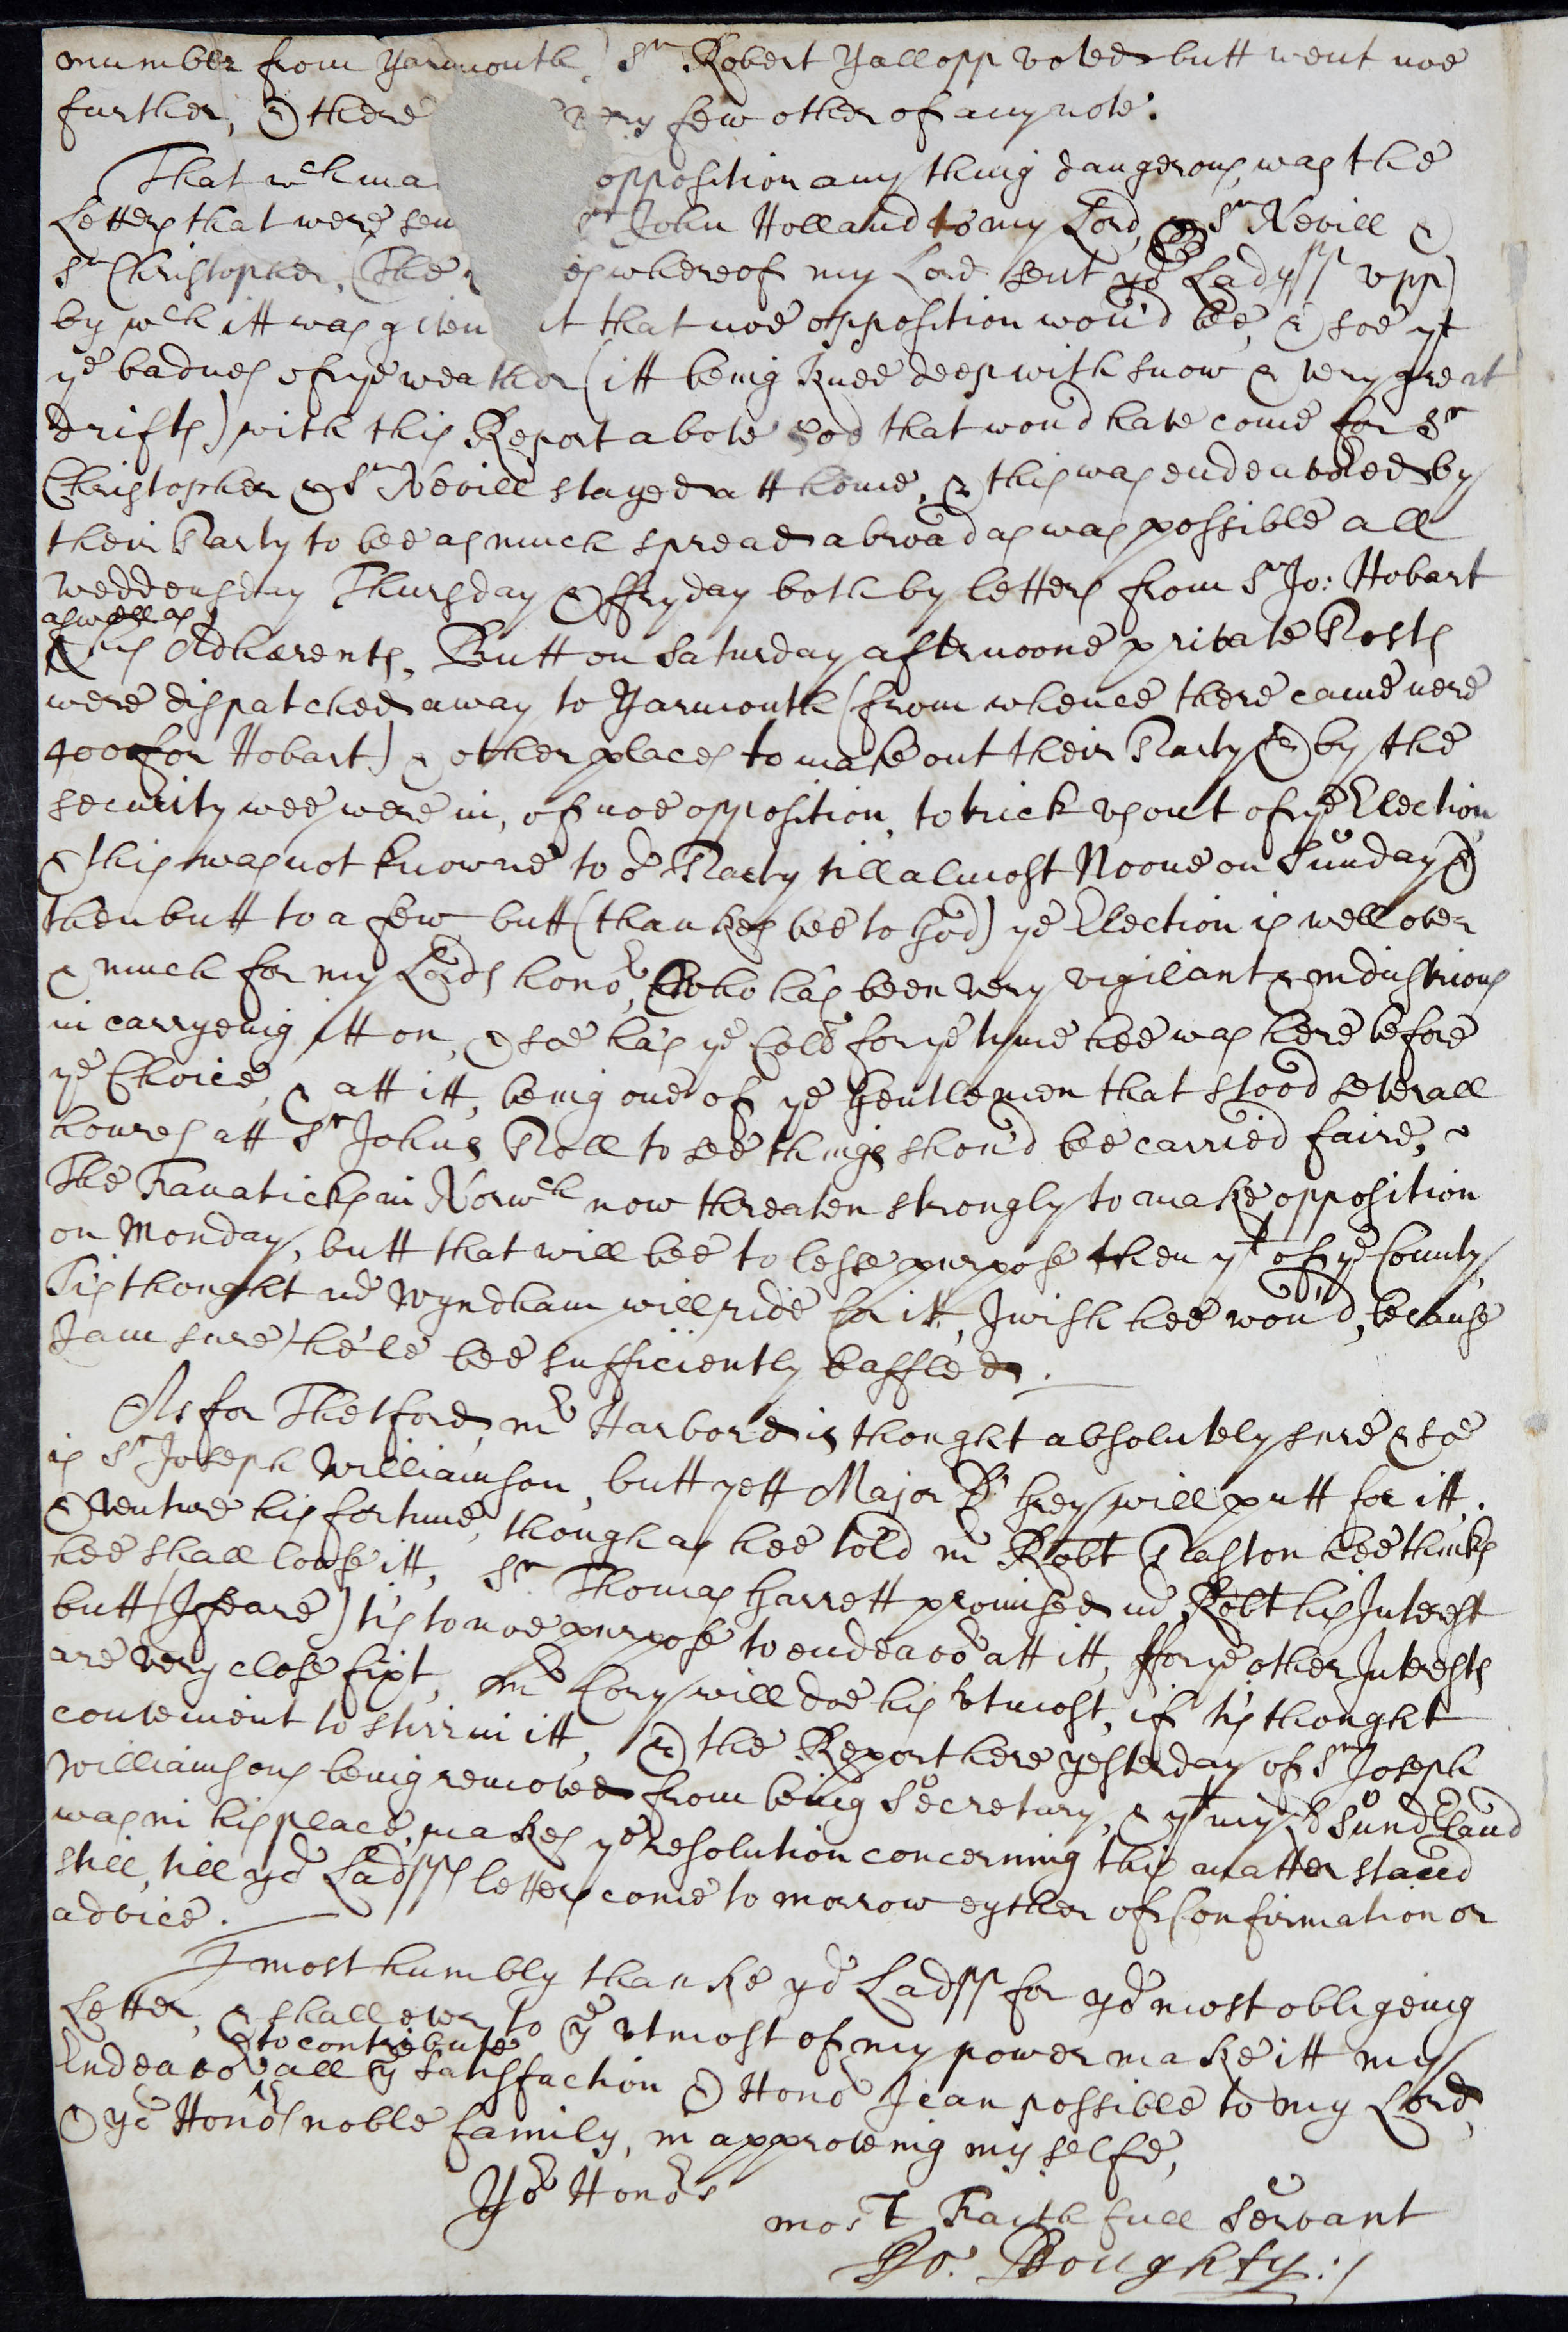 number from Yarmouth, Sr. Robert Yallopp voted butt went noe
further, & there very few other of any note.
That wch ma opposition any thing dangerous, was the
Letters that were sen Sr John Holland to my Lord, & Sr Nevill &
Sr Christopher, (The es whereof my Lord sent yor Ladysp vpp)
by wch itt was given t that noe opposition wou'd bee, & soe yt
ye badnes of ye weather (itt being knee deep with snow & very great
drifts) with this Report above 200 that wou'd have come for Sr
Christopher & Sr Nevill stayed att home, & this was endeavored by
their Party to bee as much spread abroad as was possible all
Weddensday Thursday & ffryday both by letters from Sr Jo: Hobart
as well as
& his Adhærents, Butt on Saturday afternoone private Posts
were dispatched away to Yarmouth (from whence there came nere
400 for Hobart) & other places to make out their Party & by the
security wee were in, of noe opposition, to trick vs out of ye Election,
& this was not knowne to or Party till almost Noone on Sunday &
then butt to a few butt (thankes bee to God) ye Election is well over
& much for my Lords honor, who has been very vigilant & industrious
in carryeing itt on, & soe has ye Coll: for ye tyme hee was here before
ye Choice, & att itt, being one of ye Gentlemen that stood severall
houres att Sr Johns Poll to see things shou'd bee carried faire, &
The Fanaticks in Norwch now threaten strongly to make opposition
on Monday, butt that will bee to lesse purpose then yt of ye County,
Tis thought mr Wyndham will ride for itt, I wish hee wou'd, because
I am sure he'le bee sufficiently baffled.
As for Thetford, mr Harbord is thought absolutely sure & soe
is Sr Joseph Williamson, butt yett Major D' Grey will putt for itt
& venture his fortune, though as hee told mr Robt Paston hee thinks
hee shall loose itt, Sr Thomas Garrett promised mr Robt his Interest
butt (I feare) tis to noe purpose to endeavor att itt, ffor ye other Interests
are very close fixt, mr Cory will doe his vtmost, if tis thought
convenient to stirr in itt, & the Report here yesterday of Sr Joseph
Williamsons being removed from being Secretary, & yt my Ld Sunderland
was in his place, makes ye resolution concerning this matter stand
still, till yor Ladsps letters come to morrow eyther of Confirmation or
advice.
I most humbly thanke yor Ladsp for yor most obligeing
Letter, & shall ever to ye vtmost of my power make itt my
to contribute
Endeavor all ye satisfaction & Honor I can possible to my Lord,
& yor Honors noble family, in approveing my selfe,
Yor Honors
most Faithfull Servant
Jo. Doughty:/